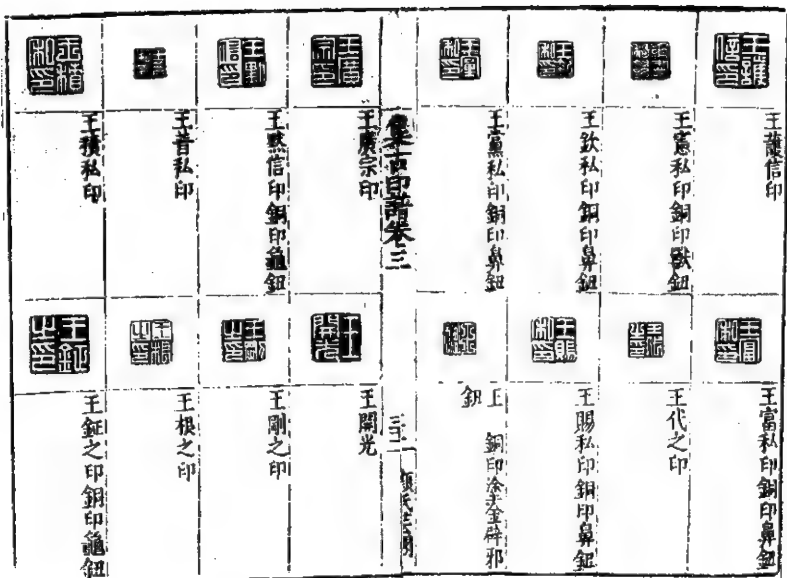 王護信印
王憲私印銅印獸鈕
王欽私印銅印鼻鈕
王黨私印銅印鼻鈕
王富私印銅印鼻鈕
王代之印
王賜私印銅印鼻鈕
王 銅印塗金辟邪
鈕
集古印譜卷三
三二
王廣宗印
王黙信印銅印龜鈕
王昔私印
王積私印
王開光
王剛之印
王根之印
王鉦之印銅印龜鈕